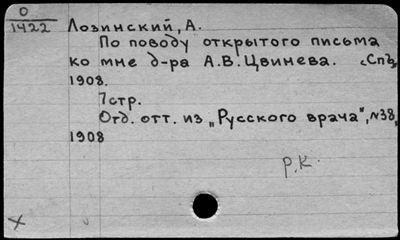 О
1422
Лозинский, А.
По поводу открытого письма
ко мне д-ра А.В. Цвинева. СПб,
1908.
7 стр.
Отд. отт. из „Русского врача", №38,
1908
Р.К.